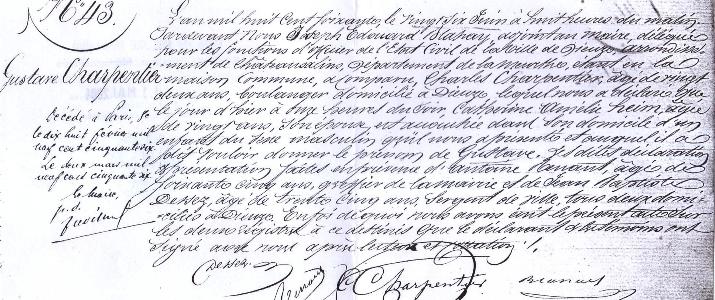 N° 43.
Gustave Charpentier
Décédé à Paris, le
le dix huit février mil
neuf cent cinquante six
le deux mars mil
neuf cent cinquante six
le Maire,
L'an mil huit cent soixante, le vingt six Juin à huit heures du matin
Pardevant Nous Joseph Edouard adjoint au maire, délégué
pour les fonctions d'officier de l'Etat Civil de la Ville de Dieuze, arrondisse-
ment de Châteausalins, Département de la Meurthe, étant en la
maison Commune, a comparu, Charles Charpentier, âgé de vingt
deux ans, boulanger domicilié à Dieuze lequel nous a déclaré que
le jour d'hier à onze heures du soir, Catherine Amélie âgée
de vingt ans, Son épouse, est accouchée dans son domicile d'un
enfant du sexe masculin qu'il nous a présenté et auquel il a
dit vouloir donner le prénom de Gustave. Les dites déclaration
et présentation faites en présence d'Antoine âgé de
soixante cinq ans, greffier de la mairie et de Jean Baptiste
Dessez, âgé de trente cinq ans, Sergent de ville, tous deux domi-
ciliés à Dieuze. En foi de quoi nous avons écrit le présent acte sur
les deux registres à ce destinés que le déclarant et les témoins ont
signé avec nous après lecture et
Dessez C Charpentier